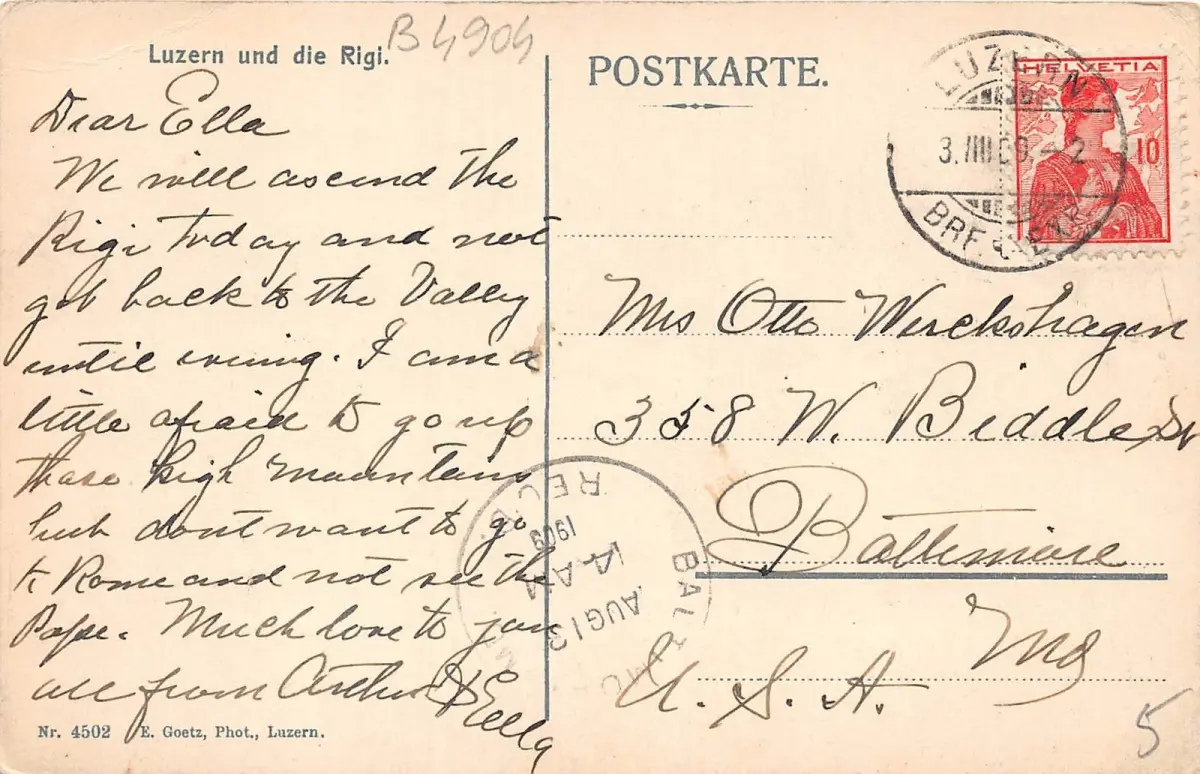 B 4904
Luzern und die Rigi.
Dear Ella
We will ascend the
Rigi today and not
get back to the Valley
until evening. I am a
little afraid to go up
these high mountains
but dont want to go
to Rome and not see the
Pope. Much love to you
all from Arthur & Ella
Nr. 4502 E. Goetz, Phot., Luzern.
POSTKARTE.
LUZERN
3. VIII 09. - 2
HELVETIA
10
Mrs Otto Werckshagen
358 W. Biddle St
Baltimore
Md
U. S. A.
REC'D.
1909
AUG 13
5